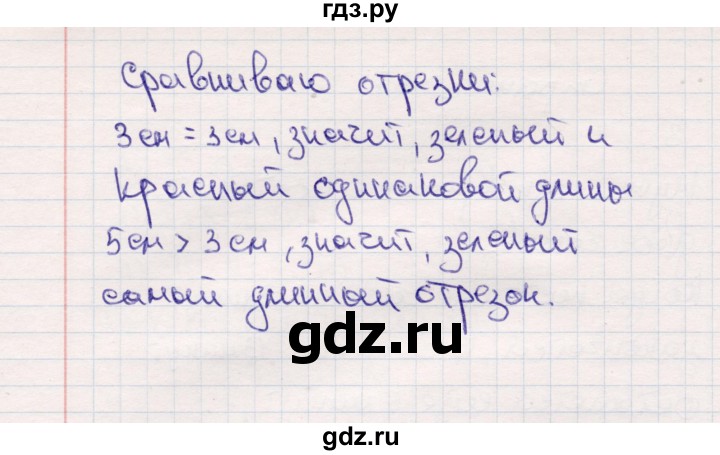 гдз.ру
Сравниваю отрезки:
3см = 3см, значит, зеленый и
красный одинаковой длины
5см > 3см, значит, зеленый
самый длинный отрезок.
gdz.ru
gdz.ru